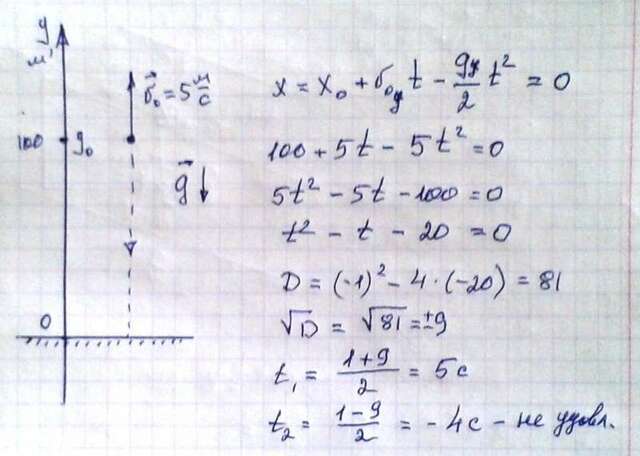 y
м,
v⃗₀ = 5 м/с
100
y₀
g⃗ ↓
0
x = x₀ + v₀y t − gy/2 t² = 0
100 + 5t − 5t² = 0
5t² − 5t − 100 = 0
t² − t − 20 = 0
D = (-1)² − 4·(−20) = 81
√D = √81 = ±9
t₁ = (1+9)/2 = 5с
t₂ = (1−9)/2 = −4с − не удовл.